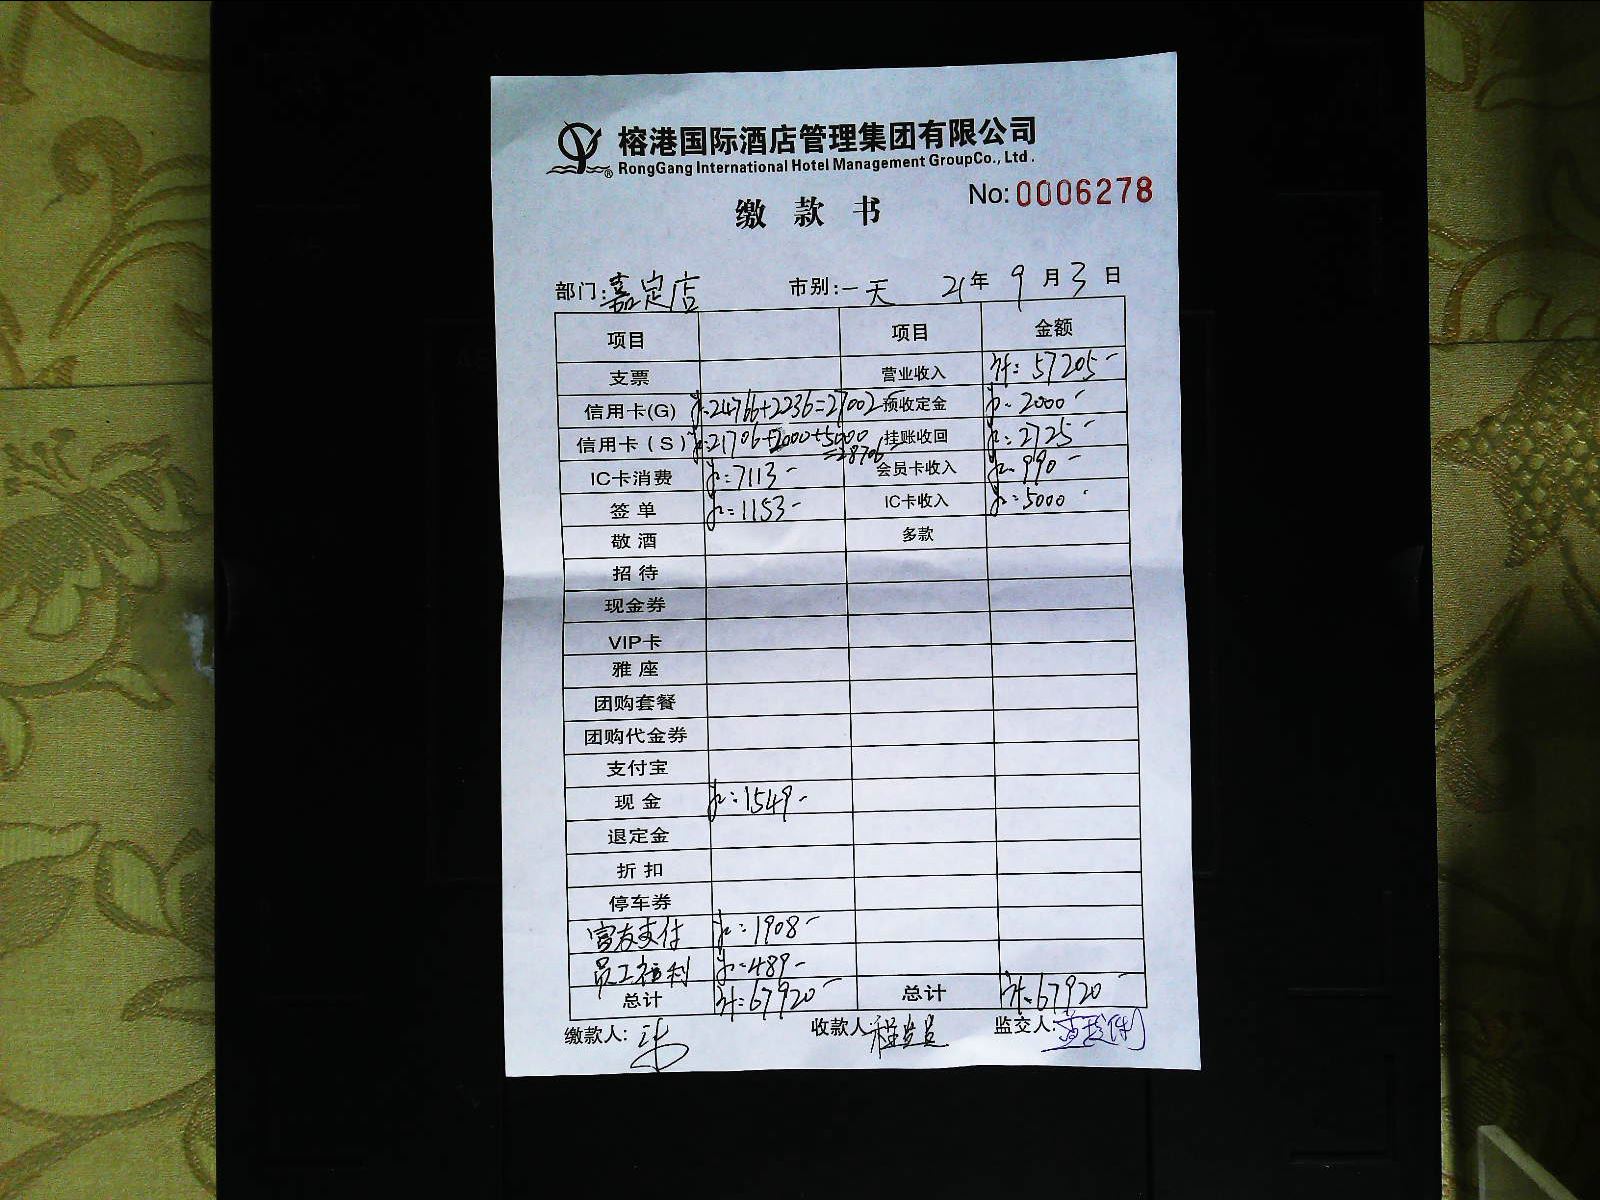 榕港国际酒店管理集团有限公司
® RongGang International Hotel Management GroupCo., Ltd.
No: 0006278
缴 款 书
部门: 嘉定店 市别: 一天 21年 9月 3日
项目 项目 金额
支票 营业收入 57205-
信用卡(G) 24766+2236=27002- 预收定金 2000-
信用卡(S) 21706+2000+5000=28706 挂账收回 2725-
IC卡消费 7113- 会员卡收入 990-
签单 1153- IC卡收入 5000-
敬酒 多款
招待
现金券
VIP卡
雅座
团购套餐
团购代金券
支付宝
现金 1549-
退定金
折扣
停车券
富友支付 1908-
员工福利 489-
总计 67920- 总计 67920-
缴款人: 收款人 监交人: